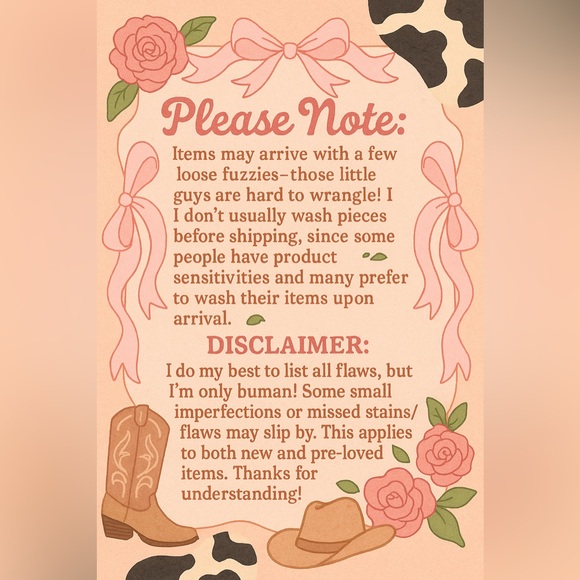 Please Note:
Items may arrive with a few
loose fuzzies–those little
guys are hard to wrangle! I
I don't usually wash pieces
before shipping, since some
people have product
sensitivities and many prefer
to wash their items upon
arrival.
DISCLAIMER:
I do my best to list all flaws, but
I'm only buman! Some small
imperfections or missed stains/
flaws may slip by. This applies
to both new and pre-loved
items. Thanks for
understanding!